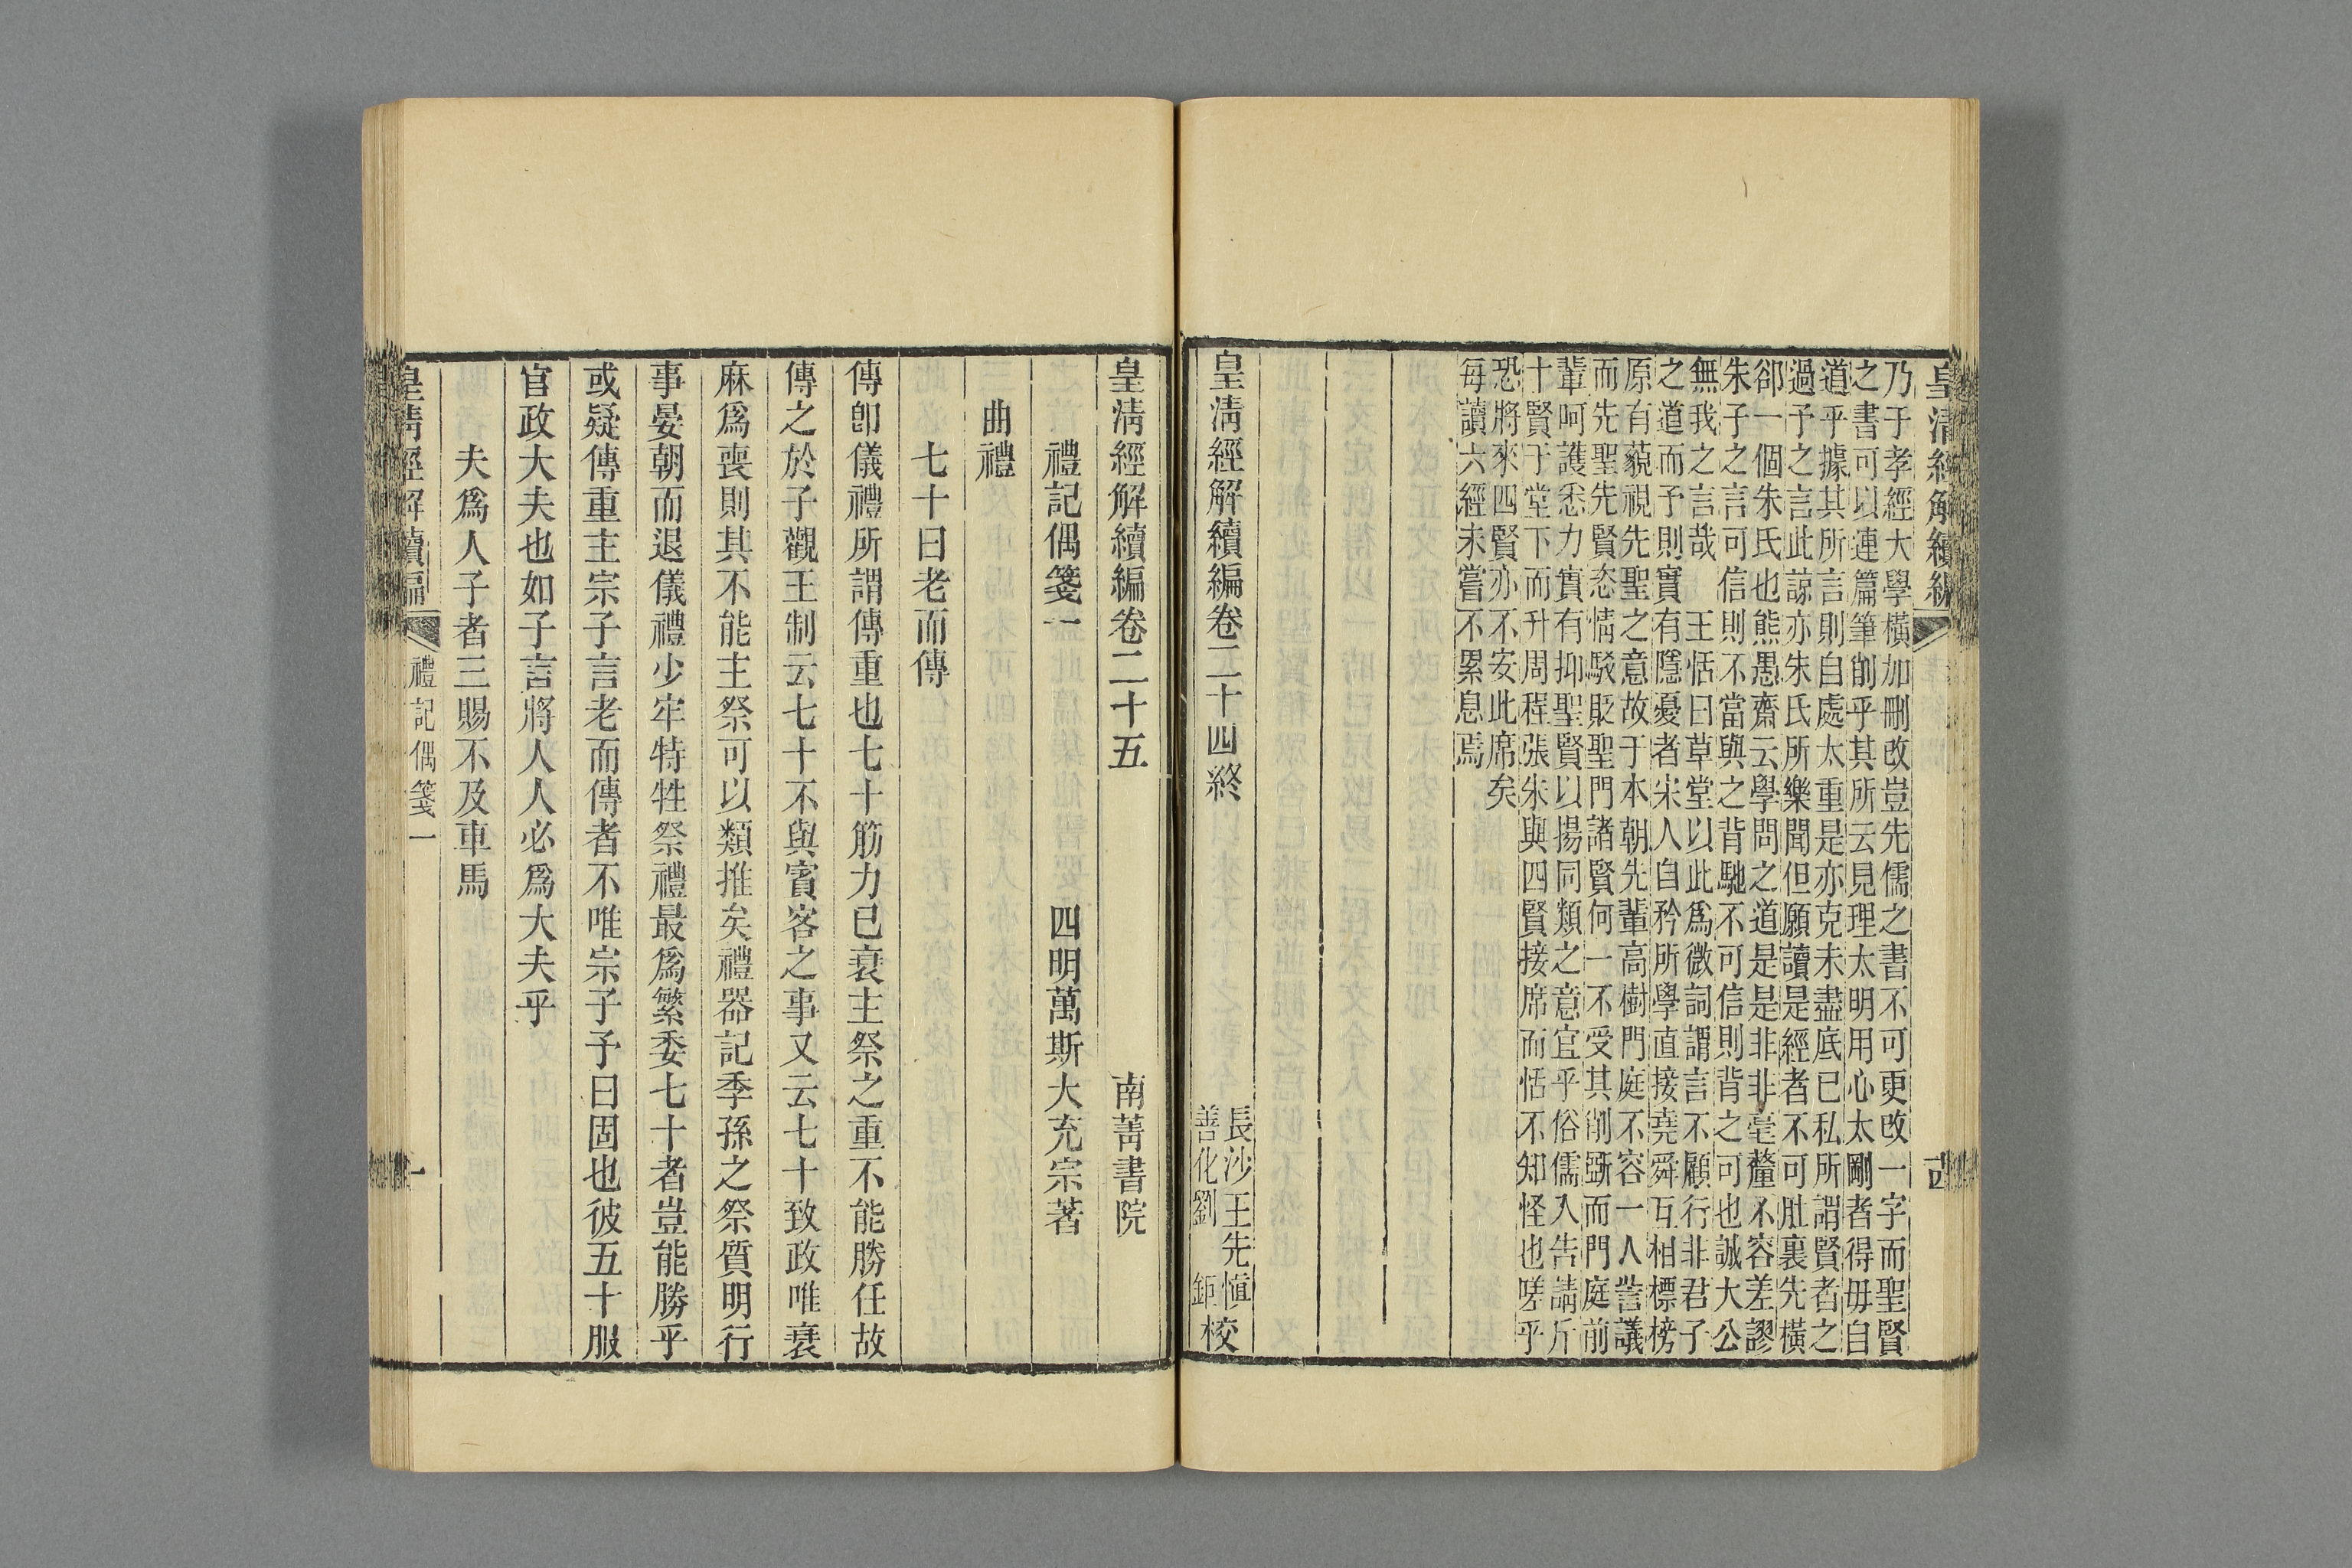 皇清經解續編
乃于孝經大學橫加刪改豈先儒之書不可更改一字而聖賢
之書可以連篇筆削乎其所云見理太明用心太剛者得毋自
道乎據其所言則自處太重是亦克未盡底已私所謂賢者之
過予之言此諒亦朱氏所樂聞但願讀是經者不可肚裏先橫
郤一個朱氏也熊愚齋云學問之道是是非非毫釐不容差謬
朱子之言可信則不當與之背馳不可信則背之可也誠大公
無我之言哉　王恬曰草堂以此爲微詞謂言不顧行非君子
之道而予則實有隱憂者宋人自矜所學直接堯舜互相標榜
原有藐視先聖之意故于本朝先輩高樹門庭不容一人訾議
而先聖先賢恣情駁貶聖門諸賢何一不受其削斲而門庭前
輩呵護悉力實有抑聖賢以揚同類之意宜乎俗儒入告請斤
十賢于堂下而升周程張朱與四賢接席而恬不知怪也嗟乎
恐將來四賢亦不安此席矣
每讀六經未嘗不累息焉
皇清經解續編卷二十四終
長沙王先愼
善化劉　鉅校
皇清經解續編卷二十五　南菁書院
禮記偶箋一　四明萬斯大充宗著
曲禮
七十曰老而傳
傳卽儀禮所謂傳重也七十筋力已衰主祭之重不能勝任故
傳之於子觀王制云七十不與賓客之事又云七十致政唯衰
麻爲喪則其不能主祭可以類推矣禮器記季孫之祭質明行
事晏朝而退儀禮少牢特牲祭禮最爲繁委七十者豈能勝乎
或疑傳重主宗子言老而傳者不唯宗子予曰固也彼五十服
官政大夫也如子言將人人必爲大夫乎
夫爲人子者三賜不及車馬
皇清經解續編
禮記偶箋一
一